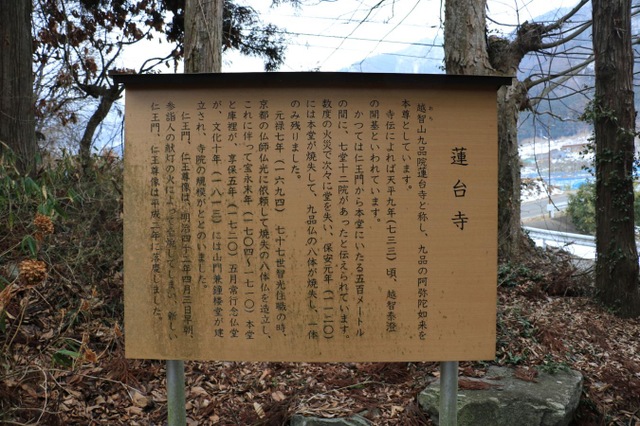 蓮台寺
越智山九品院蓮台寺と称し、九品の阿弥陀如来を
本尊としています。
寺伝によれば天平九年(七三三)頃、越智泰澄
の開基といわれています。
かつては仁王門から本堂にいたる五百メートル
の間に、七堂十二院があったと伝えられています。
数度の火災で次々に堂を失い、保安元年(一一二〇)
には本堂が焼失して、九品仏の八体が焼失し、一体
のみ残りました。
元禄七年(一六九四)七十七世智光住職の時、
京都の仏師仏光に依頼して焼失の八体仏を造立し、
これに伴って宝永末年(一七〇四~一七一〇)本堂
と庫裡が、享保五年(一七二〇)五月常行念仏堂
が、文化十年(一八一三)には山門兼鐘楼堂が建
立され、寺院の規模がととのいました。
仁王門、仁王尊像は、明治四十二年四月三日早朝、
参詣人の献灯の火によって全焼してしまい、新しい
仁王門、仁王尊像は平成二年に落慶しました。